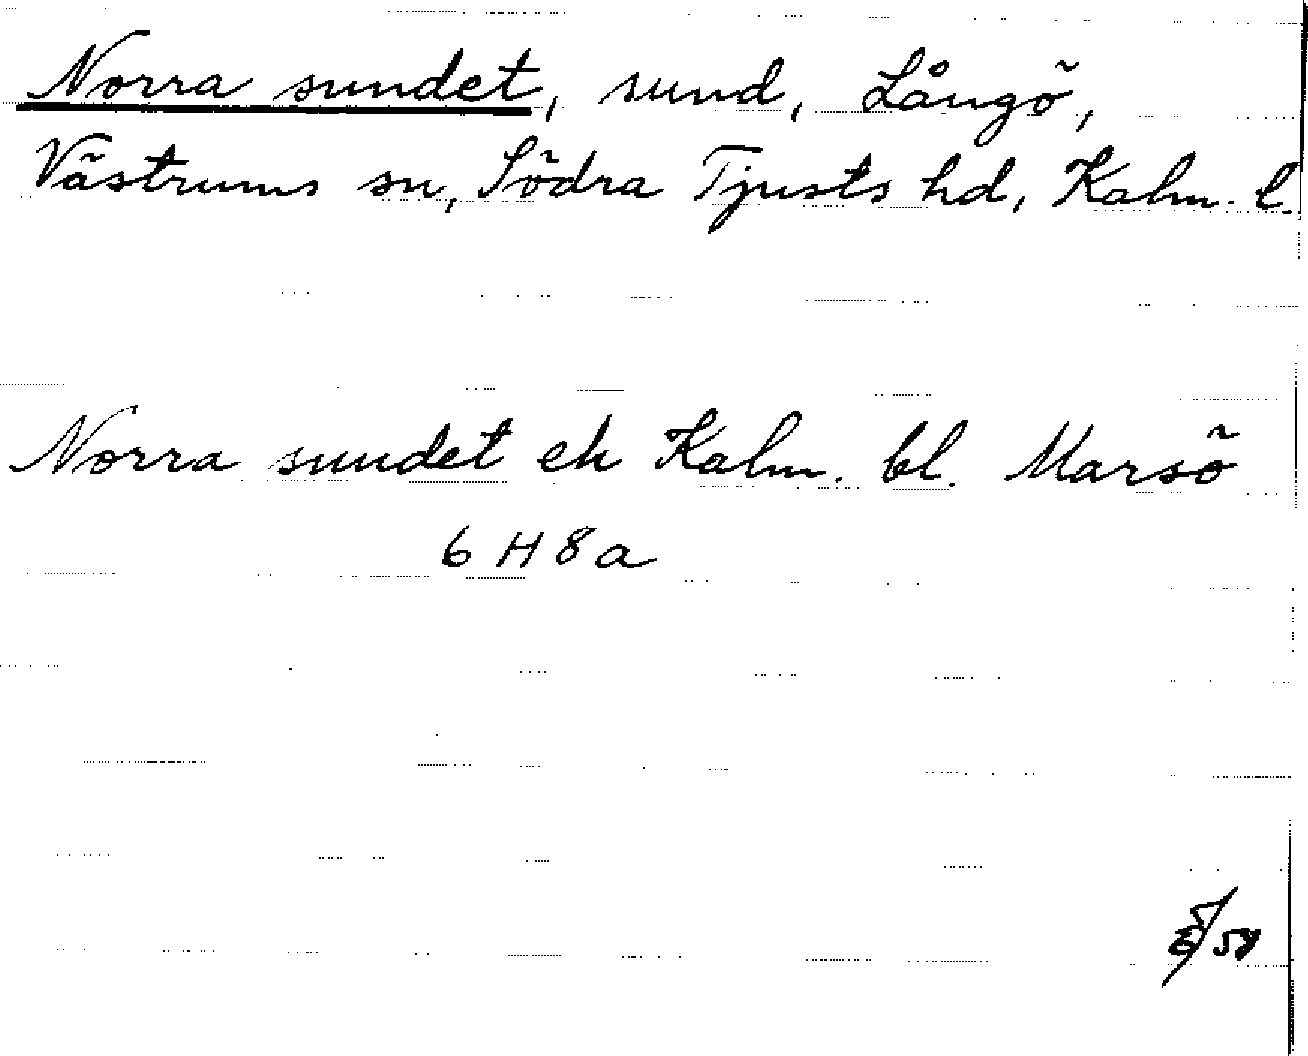 Norra sundet, sund, Långö,
Västrums sn, Södra Tjusts hd, Kalm. l.
Norra sundet ek Kalm. bl. Marsö
6 H 8 a